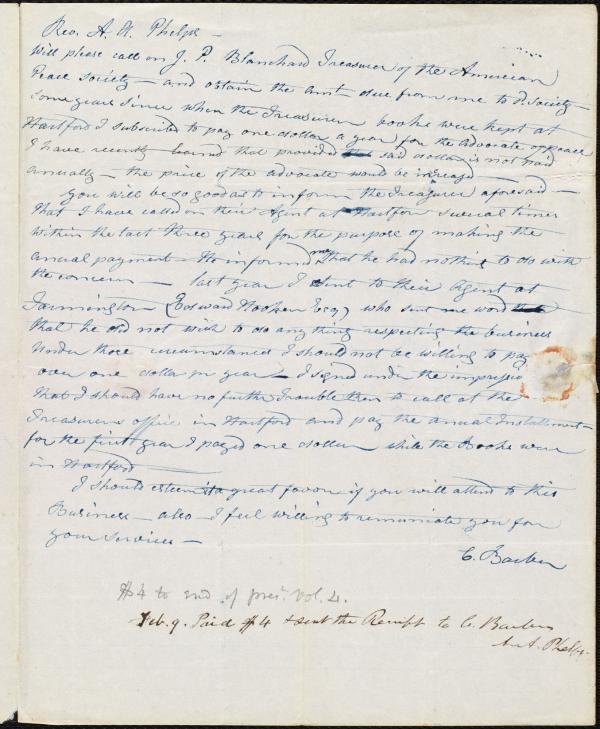 Rev. A. A. Phelps –
Will please call on J. P. Blanchard Treasurer of the American
Peace Society – and obtain the amt due from me to sd. Society –
some years since when the Treasurers books were kept at
Hartford I subscribed to pay one dollar a year for the Advocate of peace
I have recently learned that provided said dollar is not paid
annually – the price of the advocate would be increasd –
you will be so good as to inform the Treasurer aforesaid –
that I have called on their Agent at Hartford sueral times
within the last three years for the purpose of making the
annual payment – He informed me that he had nothing to do with
the concern – last year I sent to their Agent at
Farmington (Edward Hooker Esq) who sent me word
that he did not wish to do any thing respecting the business
Under those circumstances I should not be willing to pay
over one dollar pr year – I signed under the impressio
that I should have no further trouble then to call at the
Treasurers office in Hartford and pay the annual Installment –
for the first year I payed one dollar while the Books were
in Hartford
I should esteem it a great favor if you will attend to this
Business – also I feel willing to remuniate you for
your services –
C. Barber
$4 to end of pres. Vol. 4.
Feb. 9. Paid $4 & sent the Receipt to C. Barber
A. A. Phelps.